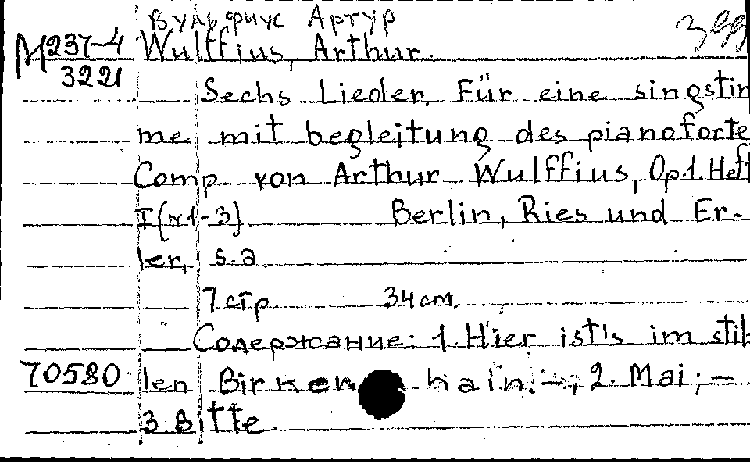 Вульфиус Артур 399
М237-4 Wulffius, Arthur.
3221
Sechs Lieder. Für eine singstim
me mit begleitung des pianoforte
Comp. von Arthur Wulffius, Op.1. Heft
I (N1-3) Berlin, Ries und Er-
ler, s.a
7 стр. 34 см.
Содержание: 1. Hier ist's im stil
70580 len Birkenhain. -, 2. Mai; -
3 Bitte